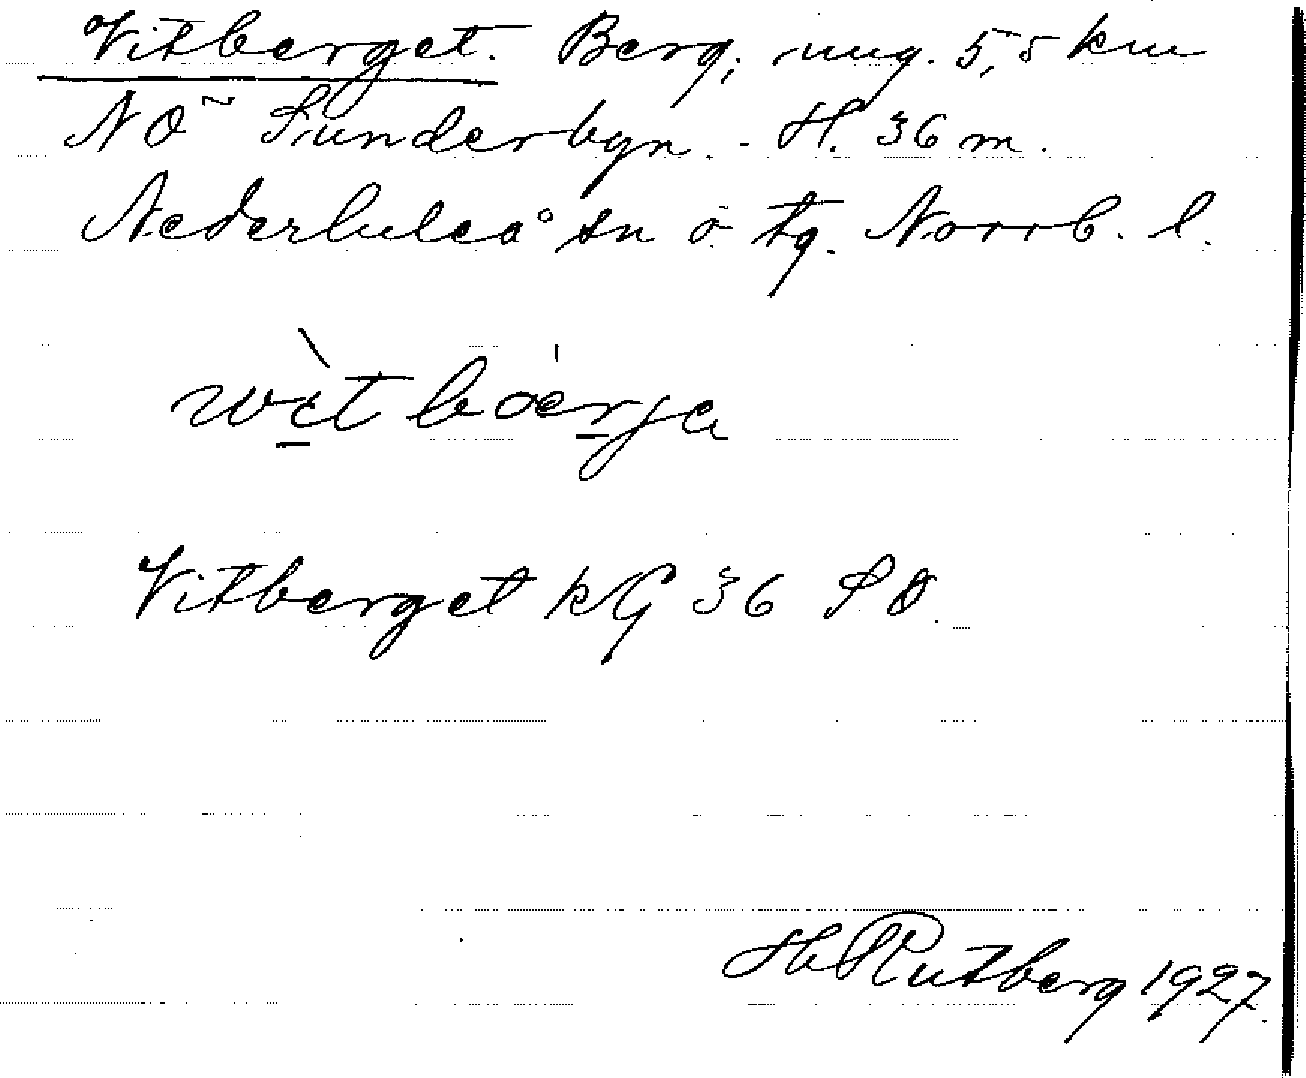 Vitberget. Berg, ung. 5,5 km
NO Sunderbyn. - H. 36 m.
Nederluleå sn o. tg. Norrb. l.
wìtbærja
Vitberget kG 36 SO.
Hb Rutberg 1927.